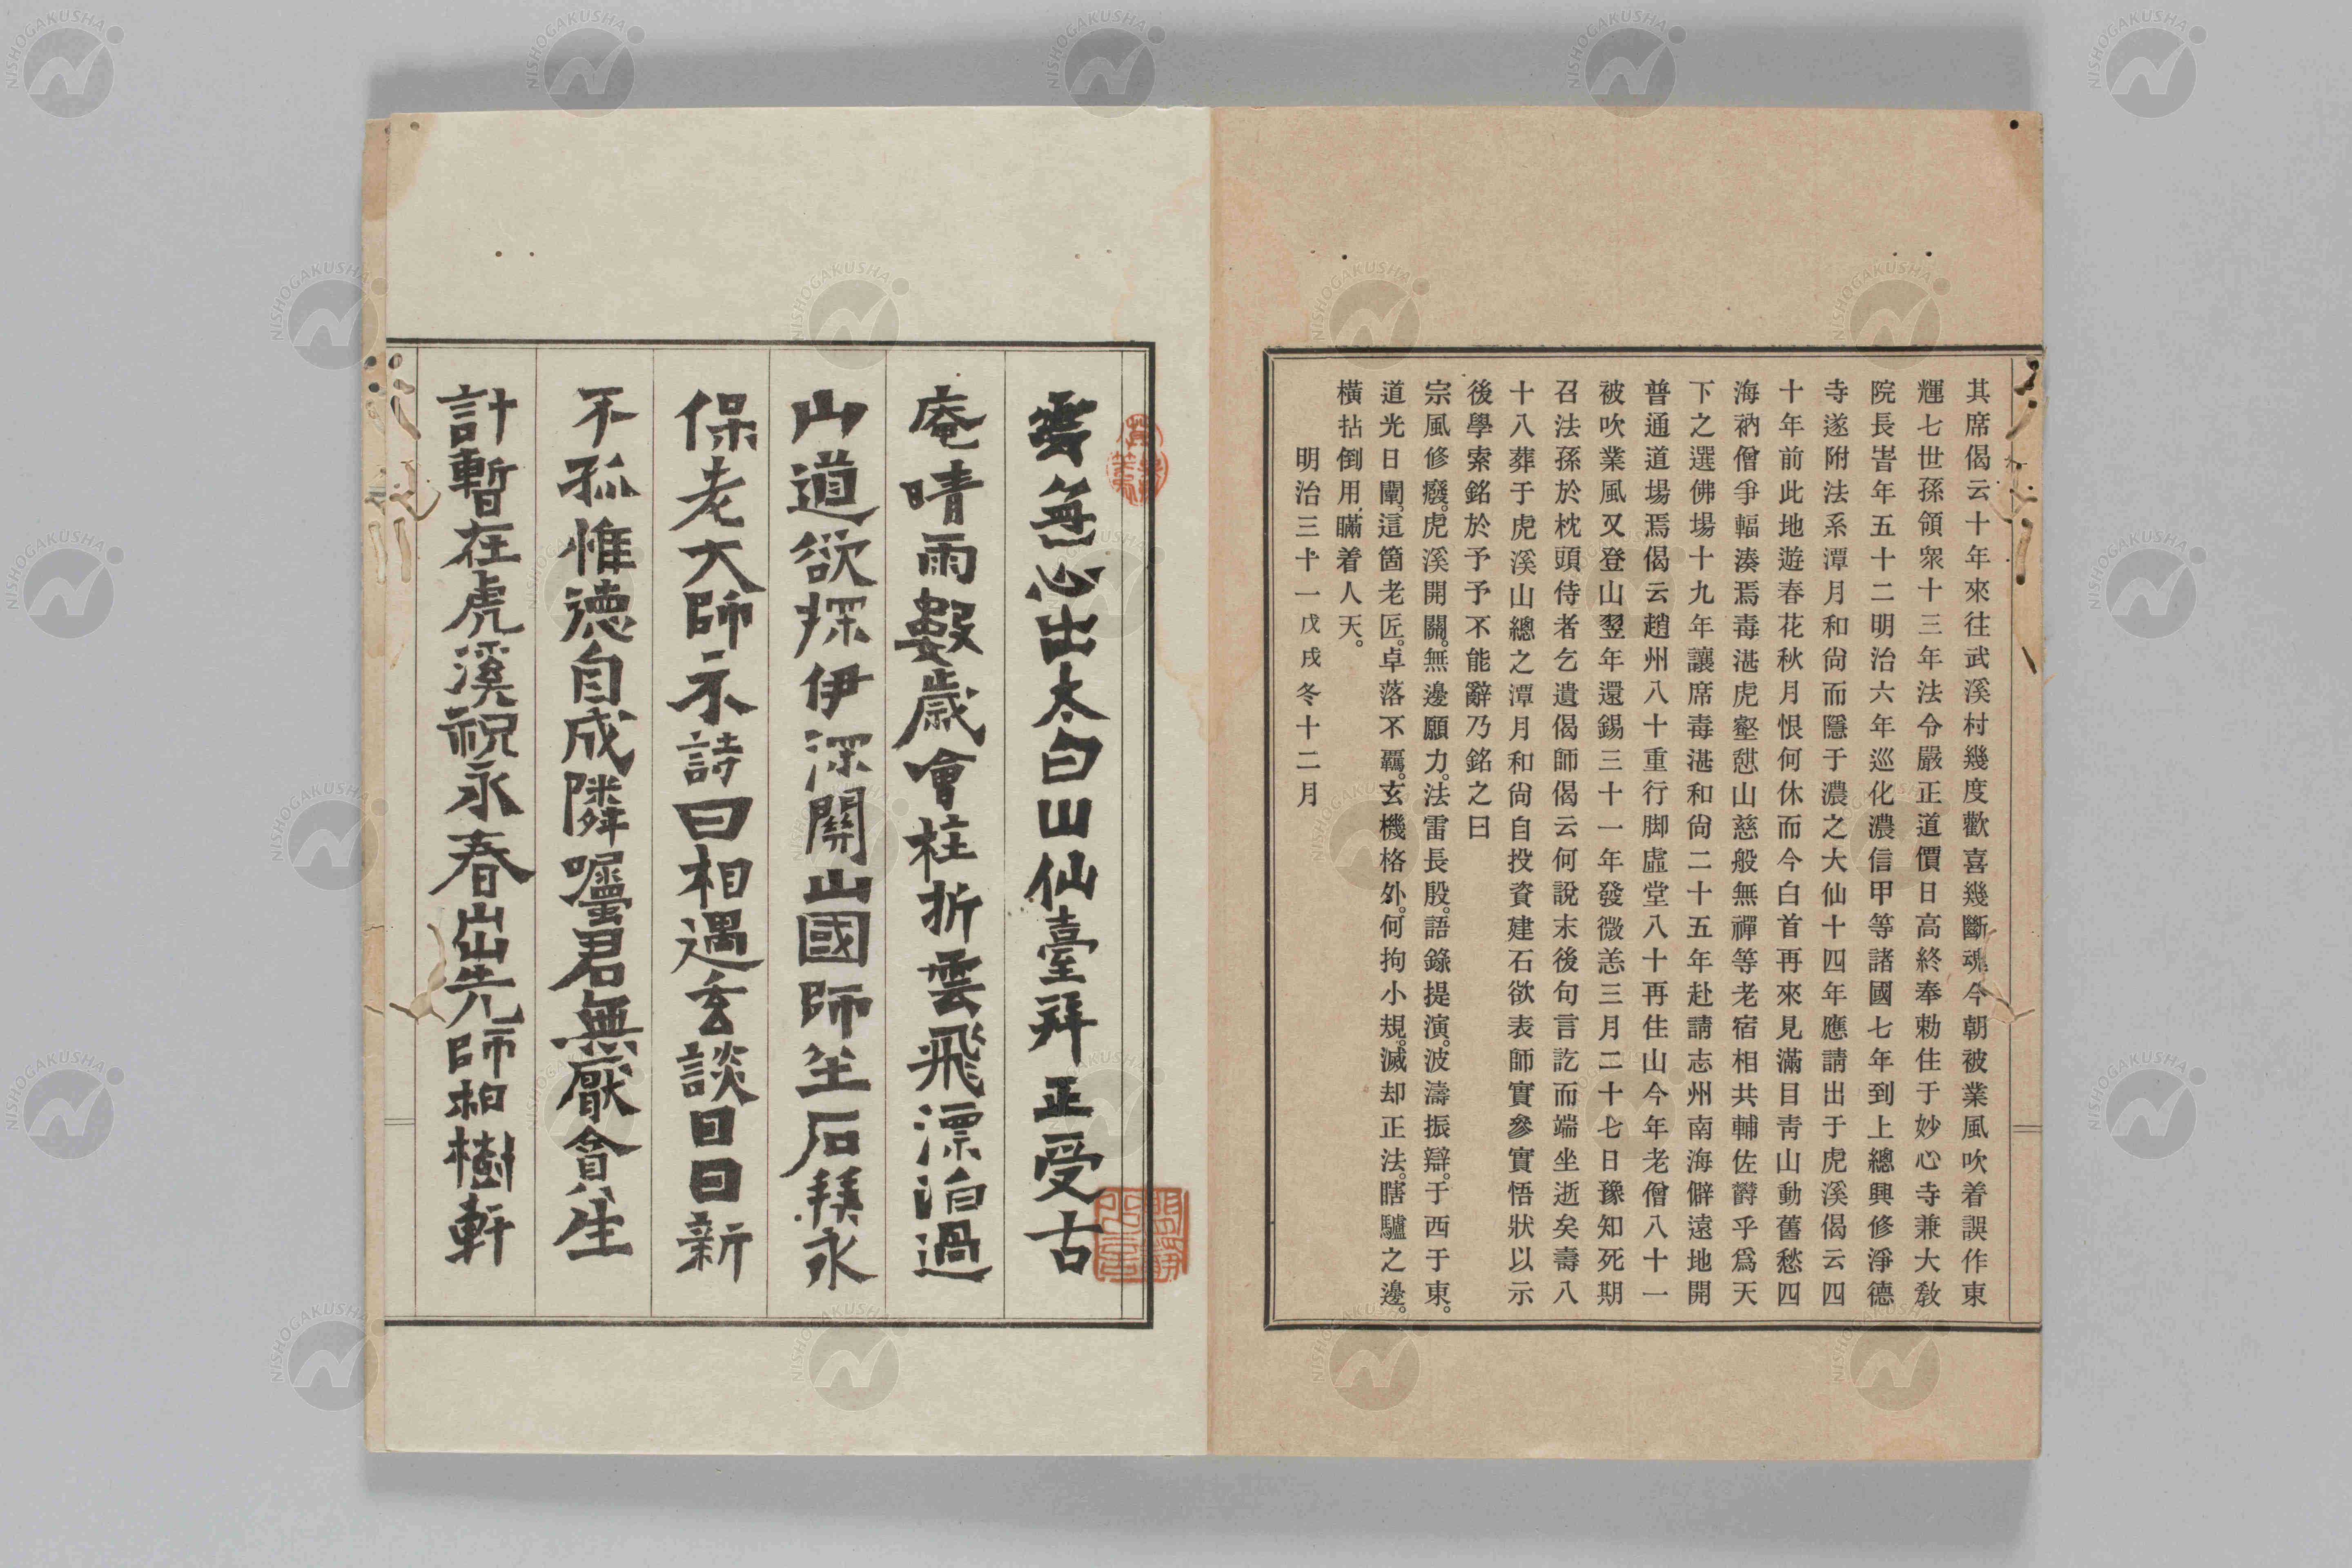 其席偈云十年來往武溪村幾度歡喜幾斷魂今朝被業風吹着誤作東
輝七世孫領衆十三年法令嚴正道價日高終奉勅住于妙心寺兼大敎
院長旹年五十二明治六年巡化濃信甲等諸國七年到上總興修淨德
寺遂附法系潭月和尙而隱于濃之大仙十四年應請出于虎溪偈云四
十年前此地遊春花秋月恨何休而今白首再來見滿目靑山動舊愁四
海衲僧爭輻湊焉毒湛虎壑憇山慈般無禪等老宿相共輔佐欝乎爲天
下之選佛場十九年讓席毒湛和尙二十五年赴請志州南海僻遠地開
普通道場焉偈云趙州八十重行脚虛堂八十再住山今年老僧八十一
被吹業風又登山翌年還錫三十一年發微恙三月二十七日豫知死期
召法孫於枕頭侍者乞遺偈師偈云何說末後句言訖而端坐逝矣壽八
十八葬于虎溪山總之潭月和尙自投資建石欲表師實參實悟狀以示
後學索銘於予予不能辭乃銘之曰
宗風修癈。虎溪開關。無邊願力。法雷長殷。語錄提演。波濤振辯。于西于東。
道光日闡。這箇老匠。卓落不覊。玄機格外。何拘小規。滅却正法。瞎驢之邊。
橫拈倒用。瞞着人天。
明治三十一戊戌冬十二月
雲無心出太白山仙臺拜正受古
庵晴雨數歲會柱折雲飛漂泊過
山道欲探伊深關山國師坐石拜永
保老大師示詩曰相遇玄談日日新
不孤惟德自成隣囑君無厭貪生
計暫在虎溪祝永春出先師柏樹軒